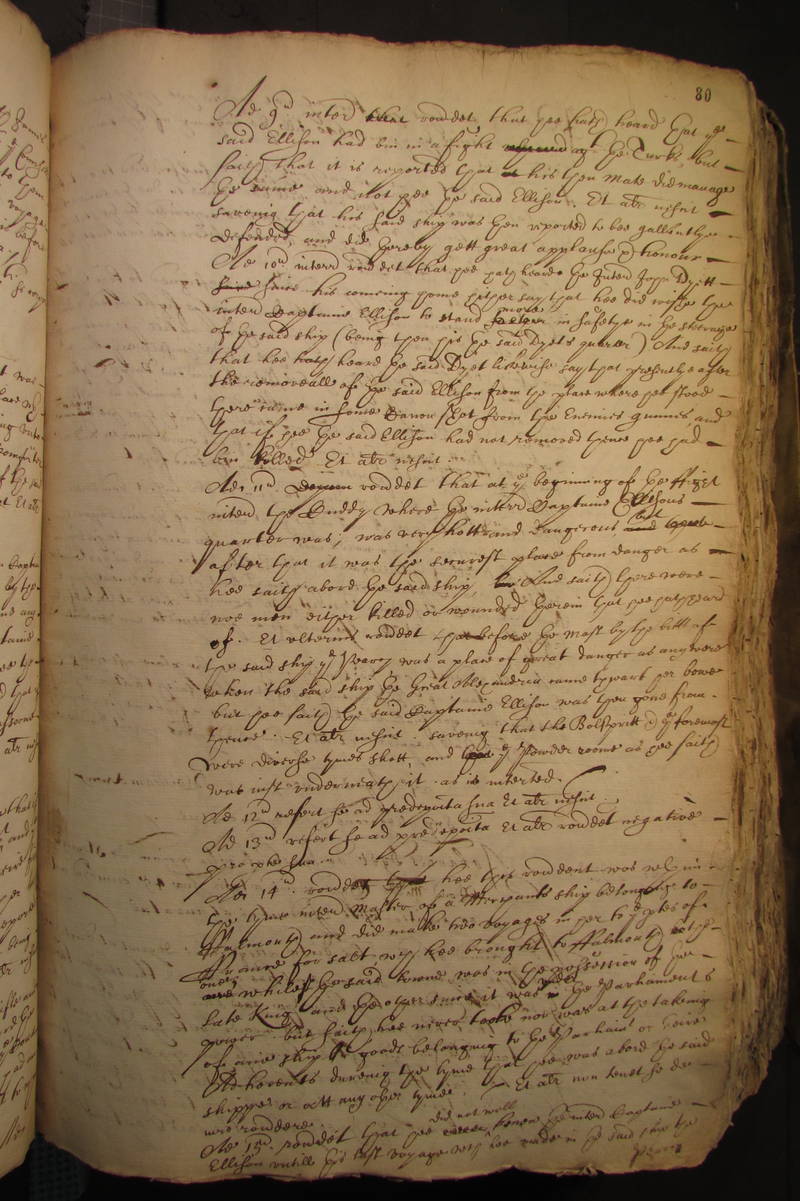 80
Ad 9um interr rondet that hee hath heard that ye
said Ellison had bin in a fight agt the Turks, but
saith that it is reported that his then Mate did manage
the same and not hee the said Ellison. Et alr nescit
saveing that his said ship was then reported to bee gallantlye
defended, and did thereby gett great applause & honour
Ad 10um interr rondet that hee hath heard the interr Dyett
since his comeing home hither say that hee did wishe the
interr Captaine Ellison to stand more in safetye in the steerage
of the said ship (being then his the said Dyets quarter) And saith
that hee hath heard the said Dyet likewise say that presentlye after
the removeall of the said Ellison from the place where hee stood
there came in some shot from the Enemies gunnes and
that if hee the said Ellison had not removed thence hee had
bin killed Et alr nescit
Ad 11um rondet that at ye beginning of the ffight
interr the Cuddy where the interr Captaine Ellisons
quarter was, was very hott and dangerous but
after that it was the securest place from danger as
hee saith abord the said ship, And saith there were
noe men either killed or wounded therein that hee heard
of. Et ulterius rondet before the Mast by the bitt of
the said ship ye Peercy was a place of great danger as any were
when the said ship the Great Alexandria came thwart her bowe
but hee saith the said Captaine Ellison was then gone from
thence. Et alr nescit. saveing that the Boltspritt & ye foremast
were diverse tymes shott, and ye Powder roome as hee saith
was just underneath it as is interred.
Ad 12um refert se ad predeposita sua Et alr nescit
Ad 13um refert se ad predeposita Et alr rondet negative
pro parte sua
Ad 14um rondet hee this rondent was
interr Master of a Merchants ship belonging to
ffalmouth and did make two voyages in her to
ffrance for salt wch hee brought to ffalmouth
once whilest the said towne was in the possession of the
late King and the other since it was under the Parliaments
power but saith hee never tooke nor was at the takeing
of anie ship or goods belonging to the Parliamt or
Adherents dureing the tyme that hee was abord the said
shippe or att any other tyme. Et alr non tenet se de
iure rondere.
Ad 15um rondet that hee did not well knowe the interr Captaine
Ellison untill his last voyage wch hee made in the said ship the